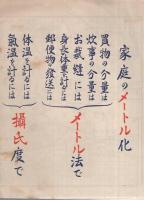 家庭のメートル化
買物の分量は
炊事の分量は
お裁縫には
身長や体重を計るには
郵便物の発送には
メートル法で
体温を計るには
氣温を計るには
攝氏度で